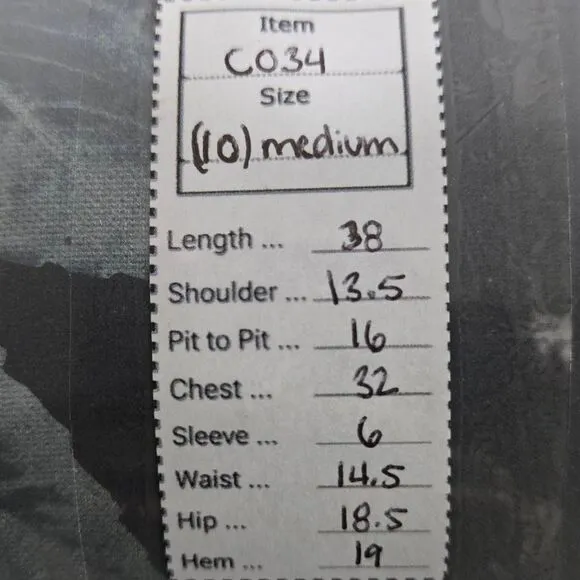 Item
CO34
Size
(10) medium
Length ... 38
Shoulder ... 13.5
Pit to Pit ... 16
Chest ... 32
Sleeve ... 6
Waist ... 14.5
Hip ... 18.5
Hem ... 19